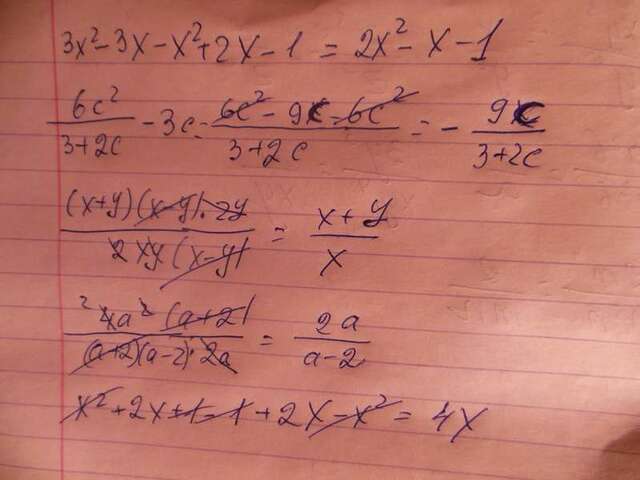 3x² - 3x - x² + 2x - 1 = 2x² - x - 1
6c²/(3+2c) - 3c = (6c² - 9c - 6c²)/(3+2c) = - 9c/(3+2c)
(x+y)(x-y)·2y/(2xy(x-y)) = (x+y)/x
²4a²(a+2)/((a+2)(a-2)·2a) = 2a/(a-2)
x² + 2x + 1 - 1 + 2x - x² = 4x